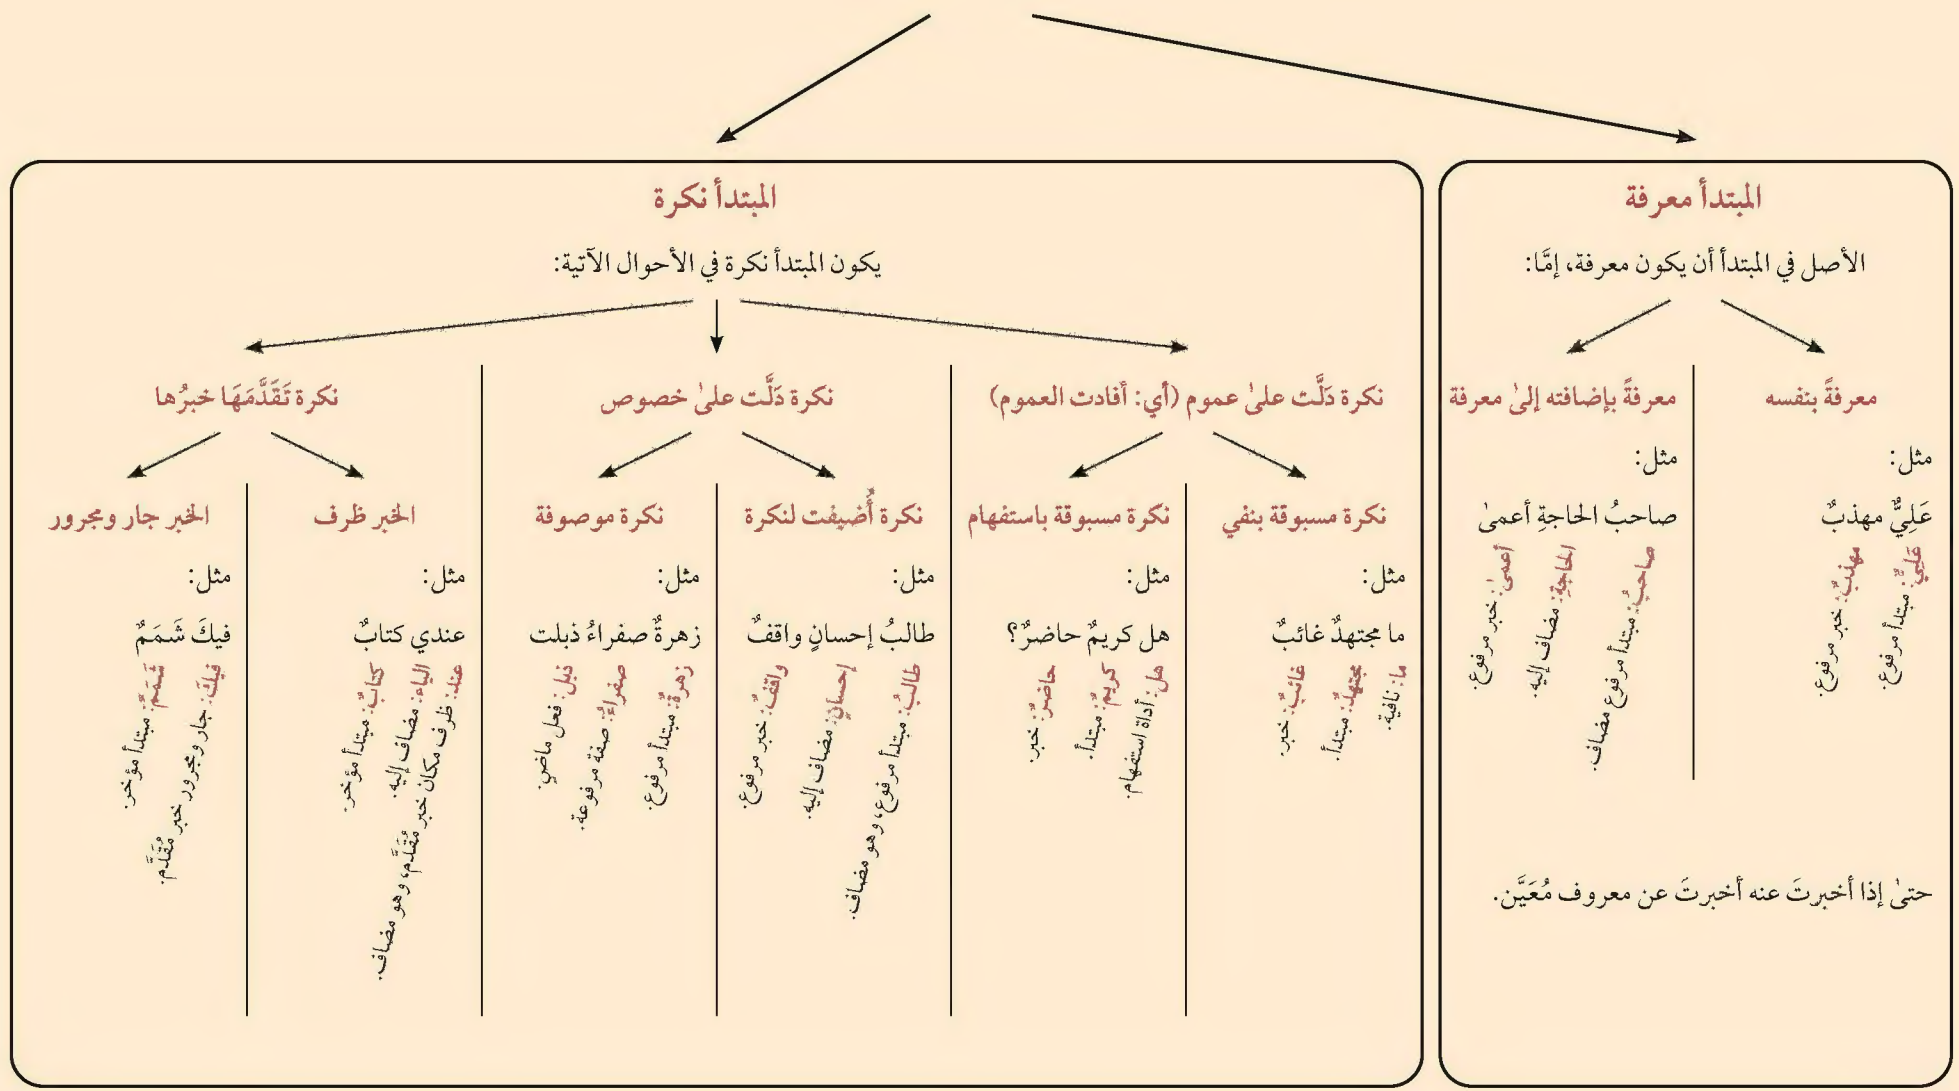 المبتدأ معرفة
الأصل في المبتدأ أن يكون معرفة، إمَّا:
معرفةً بنفسه
مثل:
عَلِيٌّ مهذبٌ
عَلِيٌّ: مبتدأ مرفوع.
مهذبٌ: خبر مرفوع.
معرفةً بإضافته إلىٰ معرفة
مثل:
صاحبُ الحاجةِ أعمىٰ
صاحبُ: مبتدأ مرفوع مضاف.
الحاجةِ: مضاف إليه.
أعمىٰ: خبر مرفوع.
حتىٰ إذا أخبرتَ عنه أخبرتَ عن معروف مُعَيَّن.
المبتدأ نكرة
يكون المبتدأ نكرة في الأحوال الآتية:
نكرة دَلَّت علىٰ عموم (أي: أفادت العموم)
نكرة مسبوقة بنفي
مثل:
ما مجتهدٌ غائبٌ
ما: نافية.
مجتهدٌ: مبتدأ.
غائبٌ: خبر.
نكرة مسبوقة باستفهام
مثل:
هل كريمٌ حاضرٌ؟
هل: أداة استفهام.
كريمٌ: مبتدأ.
حاضرٌ: خبر.
نكرة دَلَّت علىٰ خصوص
نكرة أُضيفت لنكرة
مثل:
طالبُ إحسانٍ واقفٌ
طالبُ: مبتدأ مرفوع، وهو مضاف.
إحسانٍ: مضاف إليه.
واقفٌ: خبر مرفوع.
نكرة موصوفة
مثل:
زهرةٌ صفراءُ ذبلت
زهرةٌ: مبتدأ مرفوع.
صفراءُ: صفة مرفوعة.
ذبل: فعل ماضٍ.
نكرة تَقَدَّمَهَا خبرُها
الخبر ظرف
مثل:
عندي كتابٌ
عند: ظرف مكان خبر مُقَدَّم، وهو مضاف.
الياء: مضاف إليه.
كتابٌ: مبتدأ مؤخر.
الخبر جار ومجرور
مثل:
فيكَ شَمَمٌ
فيكَ: جار ومجرور خبر مُقَدَّم.
شَمَمٌ: مبتدأ مؤخر.